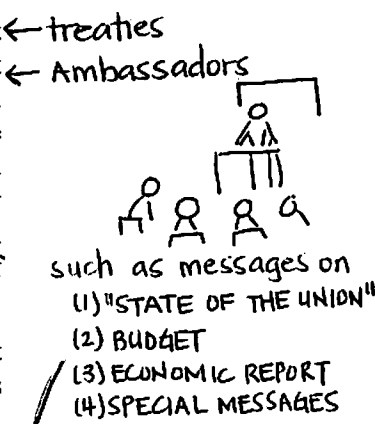 ← treaties
← Ambassadors
such as messages on
(1) "STATE OF THE UNION"
(2) BUDGET
(3) ECONOMIC REPORT
(4) SPECIAL MESSAGES